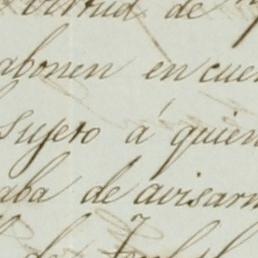 virtud de
abonen en cuen
sujeto á quien
aba de avisarm
de